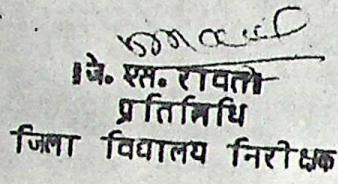 ।जे. एस. रावत।
प्रतिनिधि
जिला विद्यालय निरीक्षक